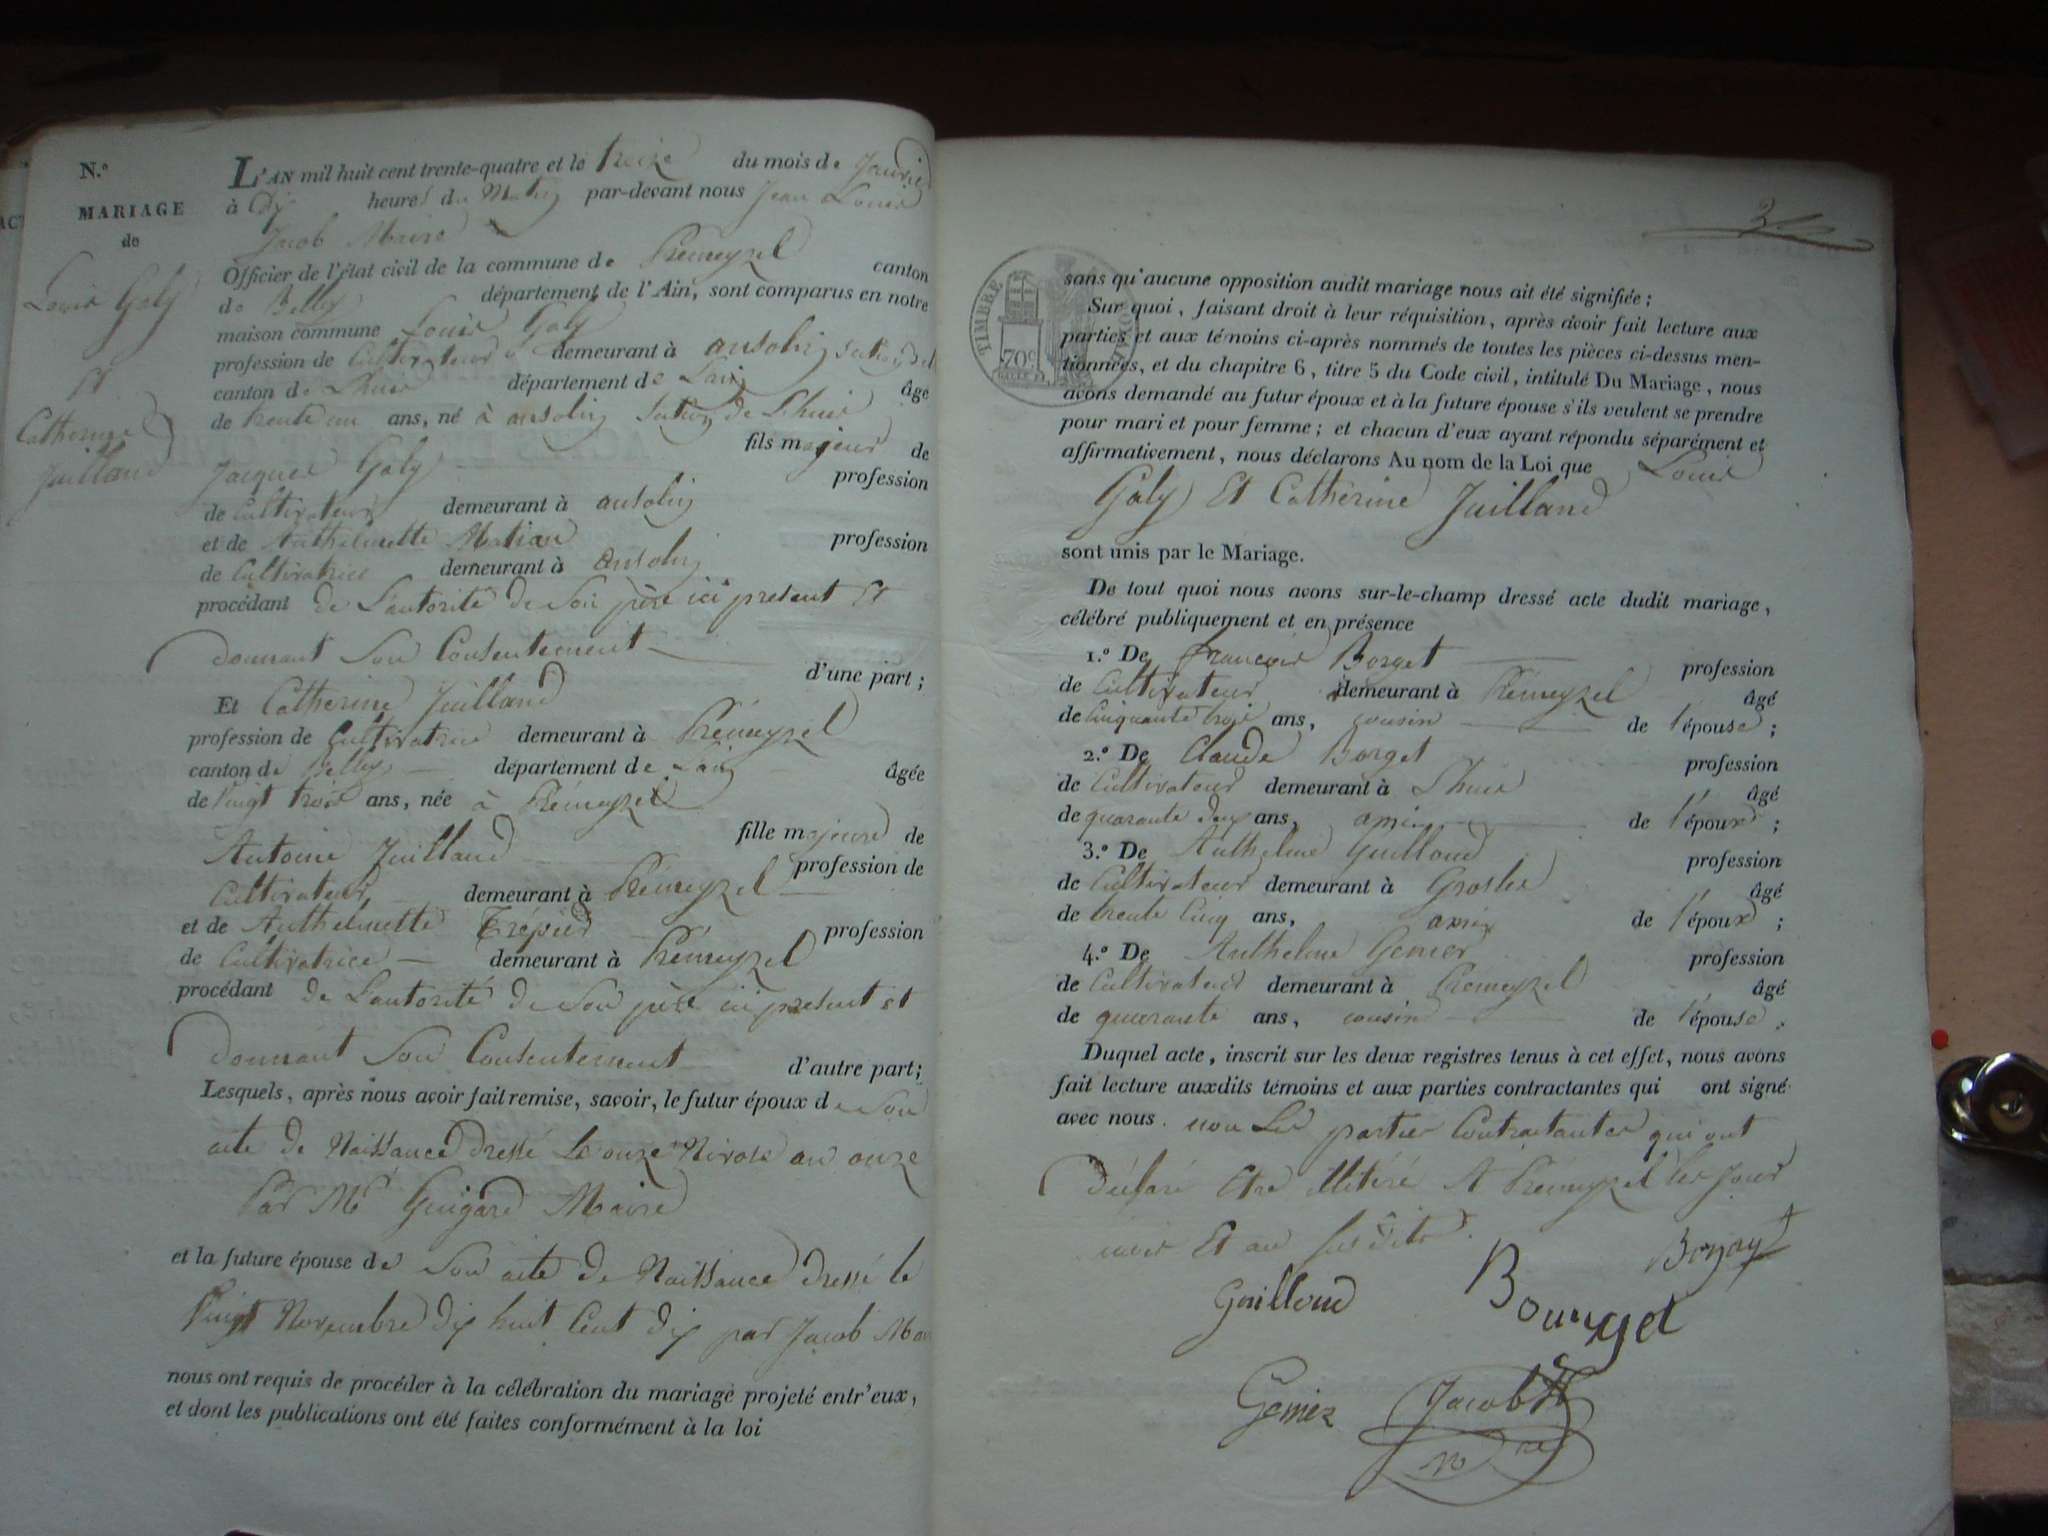 N.º
MARIAGE
de
Louis Goly
et
Catherine
Juilland
L'AN mil huit cent trente-quatre et le treize du mois de Janvier
à dix heures du Matin par-devant nous Jean Louis
Jacob Maire
Officier de l'état civil de la commune de Prémeyzel canton
de Belley département de l'Ain, sont comparus en notre
maison commune Louis Goly
profession de Cultivateur demeurant à ansolin section de
canton de Lhuis département de Lain âgé
de trente un ans, né à ansolin section de Lhuis
fils majeur de
Jacques Goly profession
de Cultivateur demeurant à ansolin
et de Anthelmette profession
de Cultivatrice demeurant à ansolin
procédant de L'autorité de Son père ici présent Et
donnant Son Consentement
d'une part ;
Et Catherine Juilland
profession de Cultivatrice demeurant à Prémeyzel
canton de Belley département de Lain âgée
de Vingt trois ans, née à Prémeyzel
fille majeure de
Antoine Juilland profession de
Cultivateur demeurant à Prémeyzel
et de Anthelmette Trépier profession
de Cultivatrice demeurant à Prémeyzel
procédant de L'autorité de Son père ici présent et
donnant Son Consentement d'autre part ;
Lesquels, après nous avoir fait remise, savoir, le futur époux de Son
acte de Naissance dressé Le onze Nivose an onze
Par Mr Guigard Maire
et la future épouse de Son acte de Naissance dressé le
Vingt Novembre dix huit Cent dix par Jacob
nous ont requis de procéder à la célébration du mariage projeté entr'eux,
et dont les publications ont été faites conformément à la loi
TIMBRE ROYAL
70c
sans qu'aucune opposition audit mariage nous ait été signifiée ;
Sur quoi, faisant droit à leur réquisition, après avoir fait lecture aux
parties et aux témoins ci-après nommés de toutes les pièces ci-dessus men-
tionnées, et du chapitre 6, titre 5 du Code civil, intitulé Du Mariage, nous
avons demandé au futur époux et à la future épouse s'ils veulent se prendre
pour mari et pour femme ; et chacun d'eux ayant répondu séparément et
affirmativement, nous déclarons Au nom de la Loi que Louis
Goly Et Catherine Juilland
sont unis par le Mariage.
De tout quoi nous avons sur-le-champ dressé acte dudit mariage,
célébré publiquement et en présence
1.º De François Borget profession
de Cultivateur demeurant à Prémeyzel âgé
de Cinquante trois ans, cousin de l'épouse ;
2.º De Claude Borget profession
de Cultivateur demeurant à Lhuis âgé
de quarante deux ans, ami de l'époux ;
3.º De Anthelme Guilloud profession
de Cultivateur demeurant à Groslée âgé
de trente Cinq ans, ami de l'époux ;
4.º De Anthelme Gemer profession
de Cultivateur demeurant à Prémeyzel âgé
de quarante ans, cousin de l'épouse .
Duquel acte, inscrit sur les deux registres tenus à cet effet, nous avons
fait lecture auxdits témoins et aux parties contractantes qui ont signé
avec nous. non Les parties Contractantes qui ont
déclaré Etre illitéré A Prémeyzel les jour
mois Et an susdits
Guilloud Bourget
Jacob